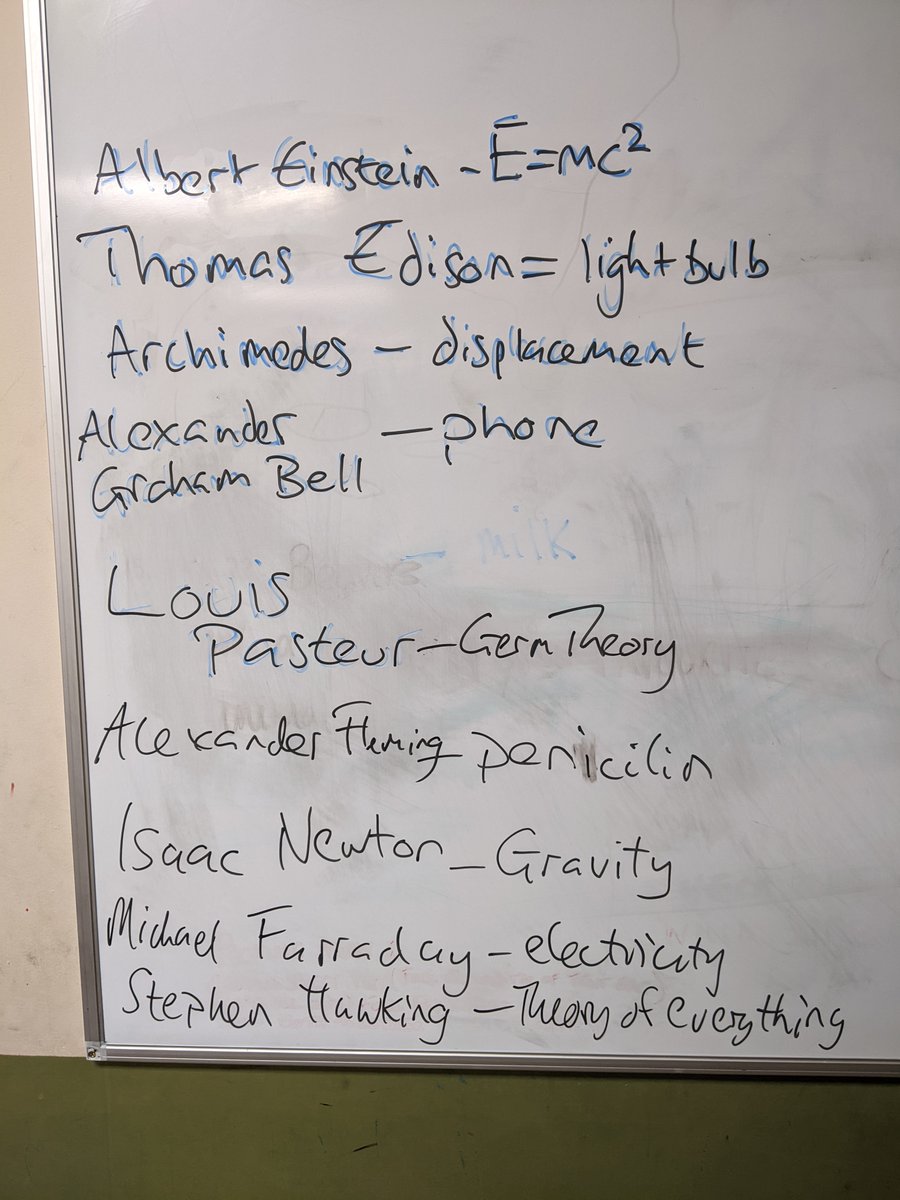 Albert Einstein - E=mc²
Thomas Edison = lightbulb
Archimedes - displacement
Alexander - phone
Graham Bell
- milk
Louis
Pasteur - Germ Theory
Alexander Fleming - penicilin
Isaac Newton - Gravity
Michael Farraday - electricity
Stephen Hawking - Theory of everything